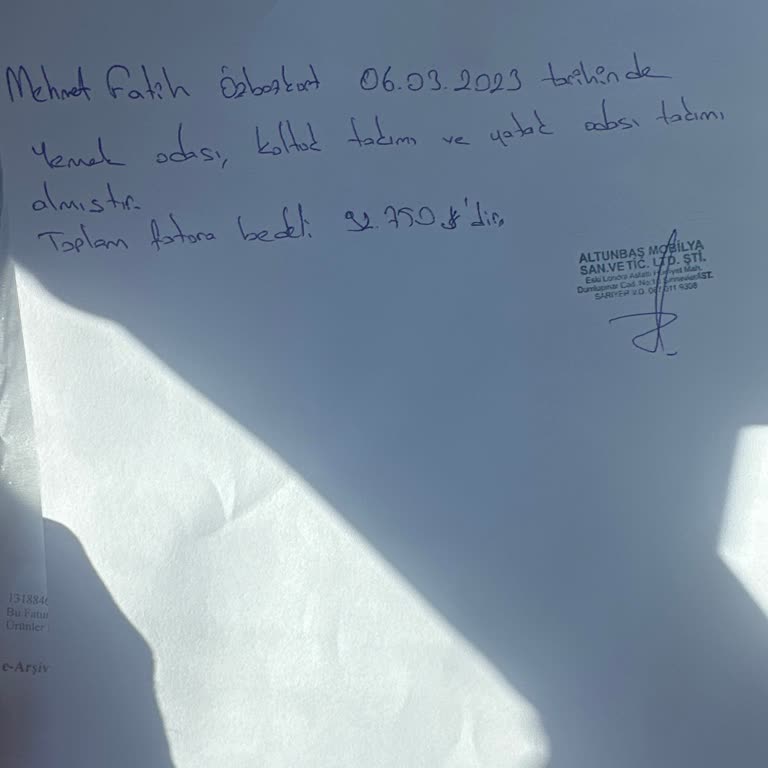 Mehmet Fatih Özbozkurt 06.03.2023 tarihinde
Yemek odası, koltuk takımı ve yatak odası takımı
almıştır.
Toplam fatura bedeli 92.750 ₺'dir.
ALTUNBAŞ MOBİLYA
SAN.VE TİC. LTD. ŞTİ.
Eski Londra Asfaltı Mah.
Dumlupınar Cad. No:
SARIYER V.D. 011 9308
131884
Bu Fatur
Ürünler
e-Arşiv